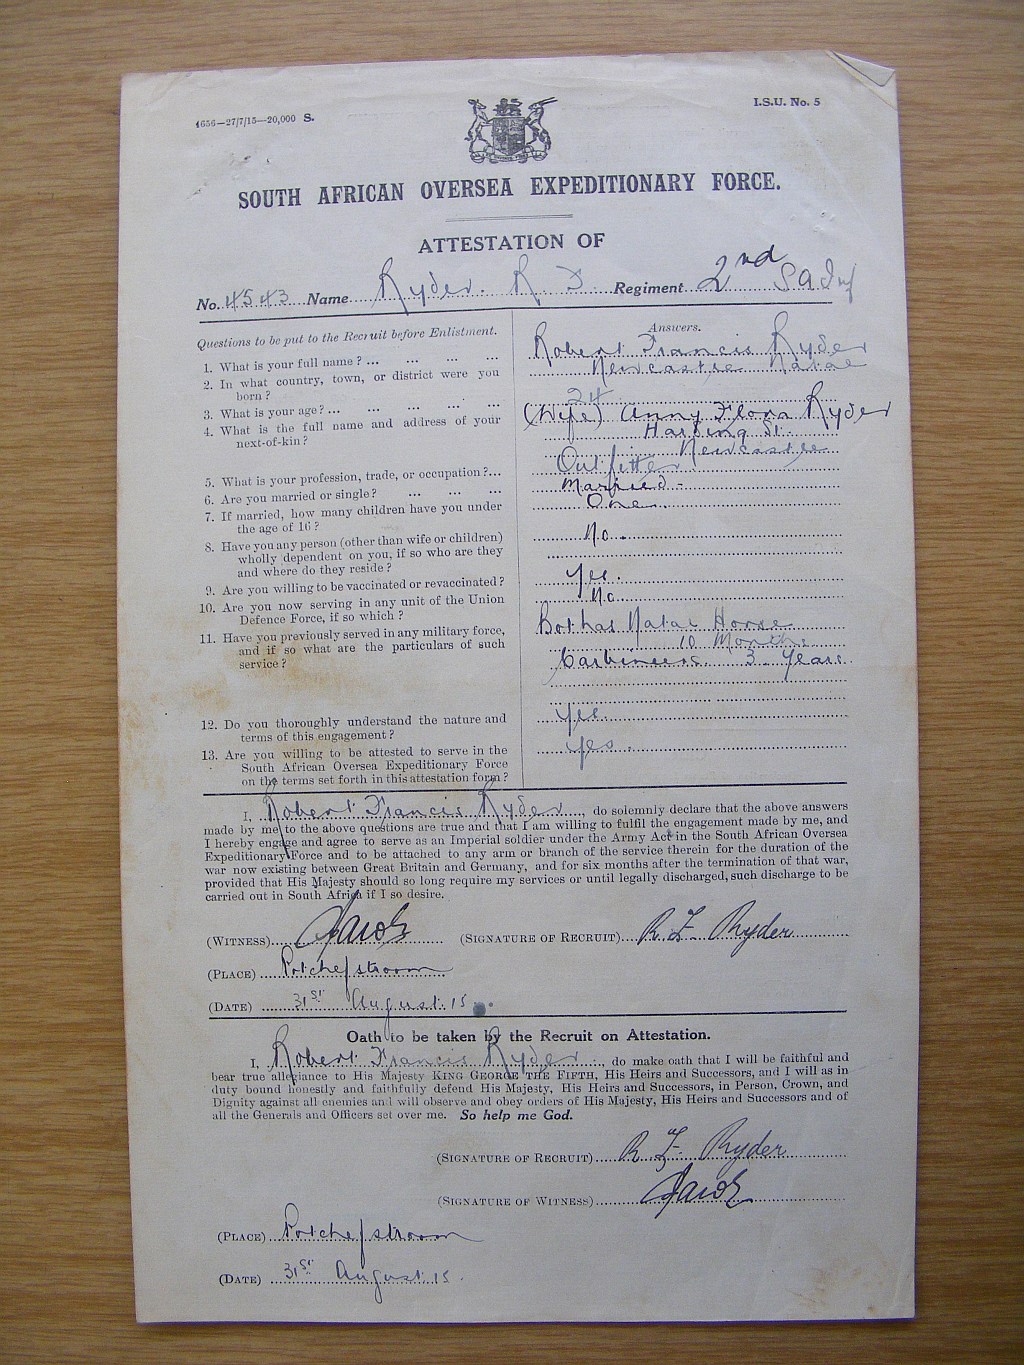 4656—27/7/15—20,000 S.
I.S.U. No. 5
SOUTH AFRICAN OVERSEA EXPEDITIONARY FORCE.
ATTESTATION OF
No. 4543 Name Ryder. R. F. Regiment 2nd S A Inf
Questions to be put to the Recruit before Enlistment.
Answers.
1. What is your full name ? ... ... ... ...
Robert Francis Ryder
2. In what country, town, or district were you
born ?
Newcastle Natal
3. What is your age? ... ... ... ... ...
24
4. What is the full name and address of your
next-of-kin ?
(Wife) Anny Flora Ryder
Harding St.
Newcastle
5. What is your profession, trade, or occupation ?...
Outfitter
6. Are you married or single ? ... ... ...
Married -
7. If married, how many children have you under
the age of 16 ?
One
8. Have you any person (other than wife or children)
wholly dependent on you, if so who are they
and where do they reside ?
No.
9. Are you willing to be vaccinated or revaccinated ?
Yes.
10. Are you now serving in any unit of the Union
Defence Force, if so which ?
No
11. Have you previously served in any military force,
and if so what are the particulars of such
service ?
Bothas Natal Horse
10 Months
Carbineers. 3 Years.
12. Do you thoroughly understand the nature and
terms of this engagement ?
Yes.
13. Are you willing to be attested to serve in the
South African Oversea Expeditionary Force
on the terms set forth in this attestation form ?
Yes.
I, Robert Francis Ryder, do solemnly declare that the above answers
made by me to the above questions are true and that I am willing to fulfil the engagement made by me, and
I hereby engage and agree to serve as an Imperial soldier under the Army Act in the South African Oversea
Expeditionary Force and to be attached to any arm or branch of the service therein for the duration of the
war now existing between Great Britain and Germany, and for six months after the termination of that war,
provided that His Majesty should so long require my services or until legally discharged, such discharge to be
carried out in South Africa if I so desire.
(WITNESS) (SIGNATURE OF RECRUIT) R. F. Ryder
(PLACE) Potchefstroom
(DATE) 31st August 15
Oath to be taken by the Recruit on Attestation.
I, Robert Francis Ryder, do make oath that I will be faithful and
bear true allegiance to His Majesty KING GEORGE THE FIFTH, His Heirs and Successors, and I will as in
duty bound honestly and faithfully defend His Majesty, His Heirs and Successors, in Person, Crown, and
Dignity against all enemies and will observe and obey orders of His Majesty, His Heirs and Successors and of
all the Generals and Officers set over me. So help me God.
(SIGNATURE OF RECRUIT) R. F. Ryder
(SIGNATURE OF WITNESS)
(PLACE) Potchefstroom
(DATE) 31st August 15.